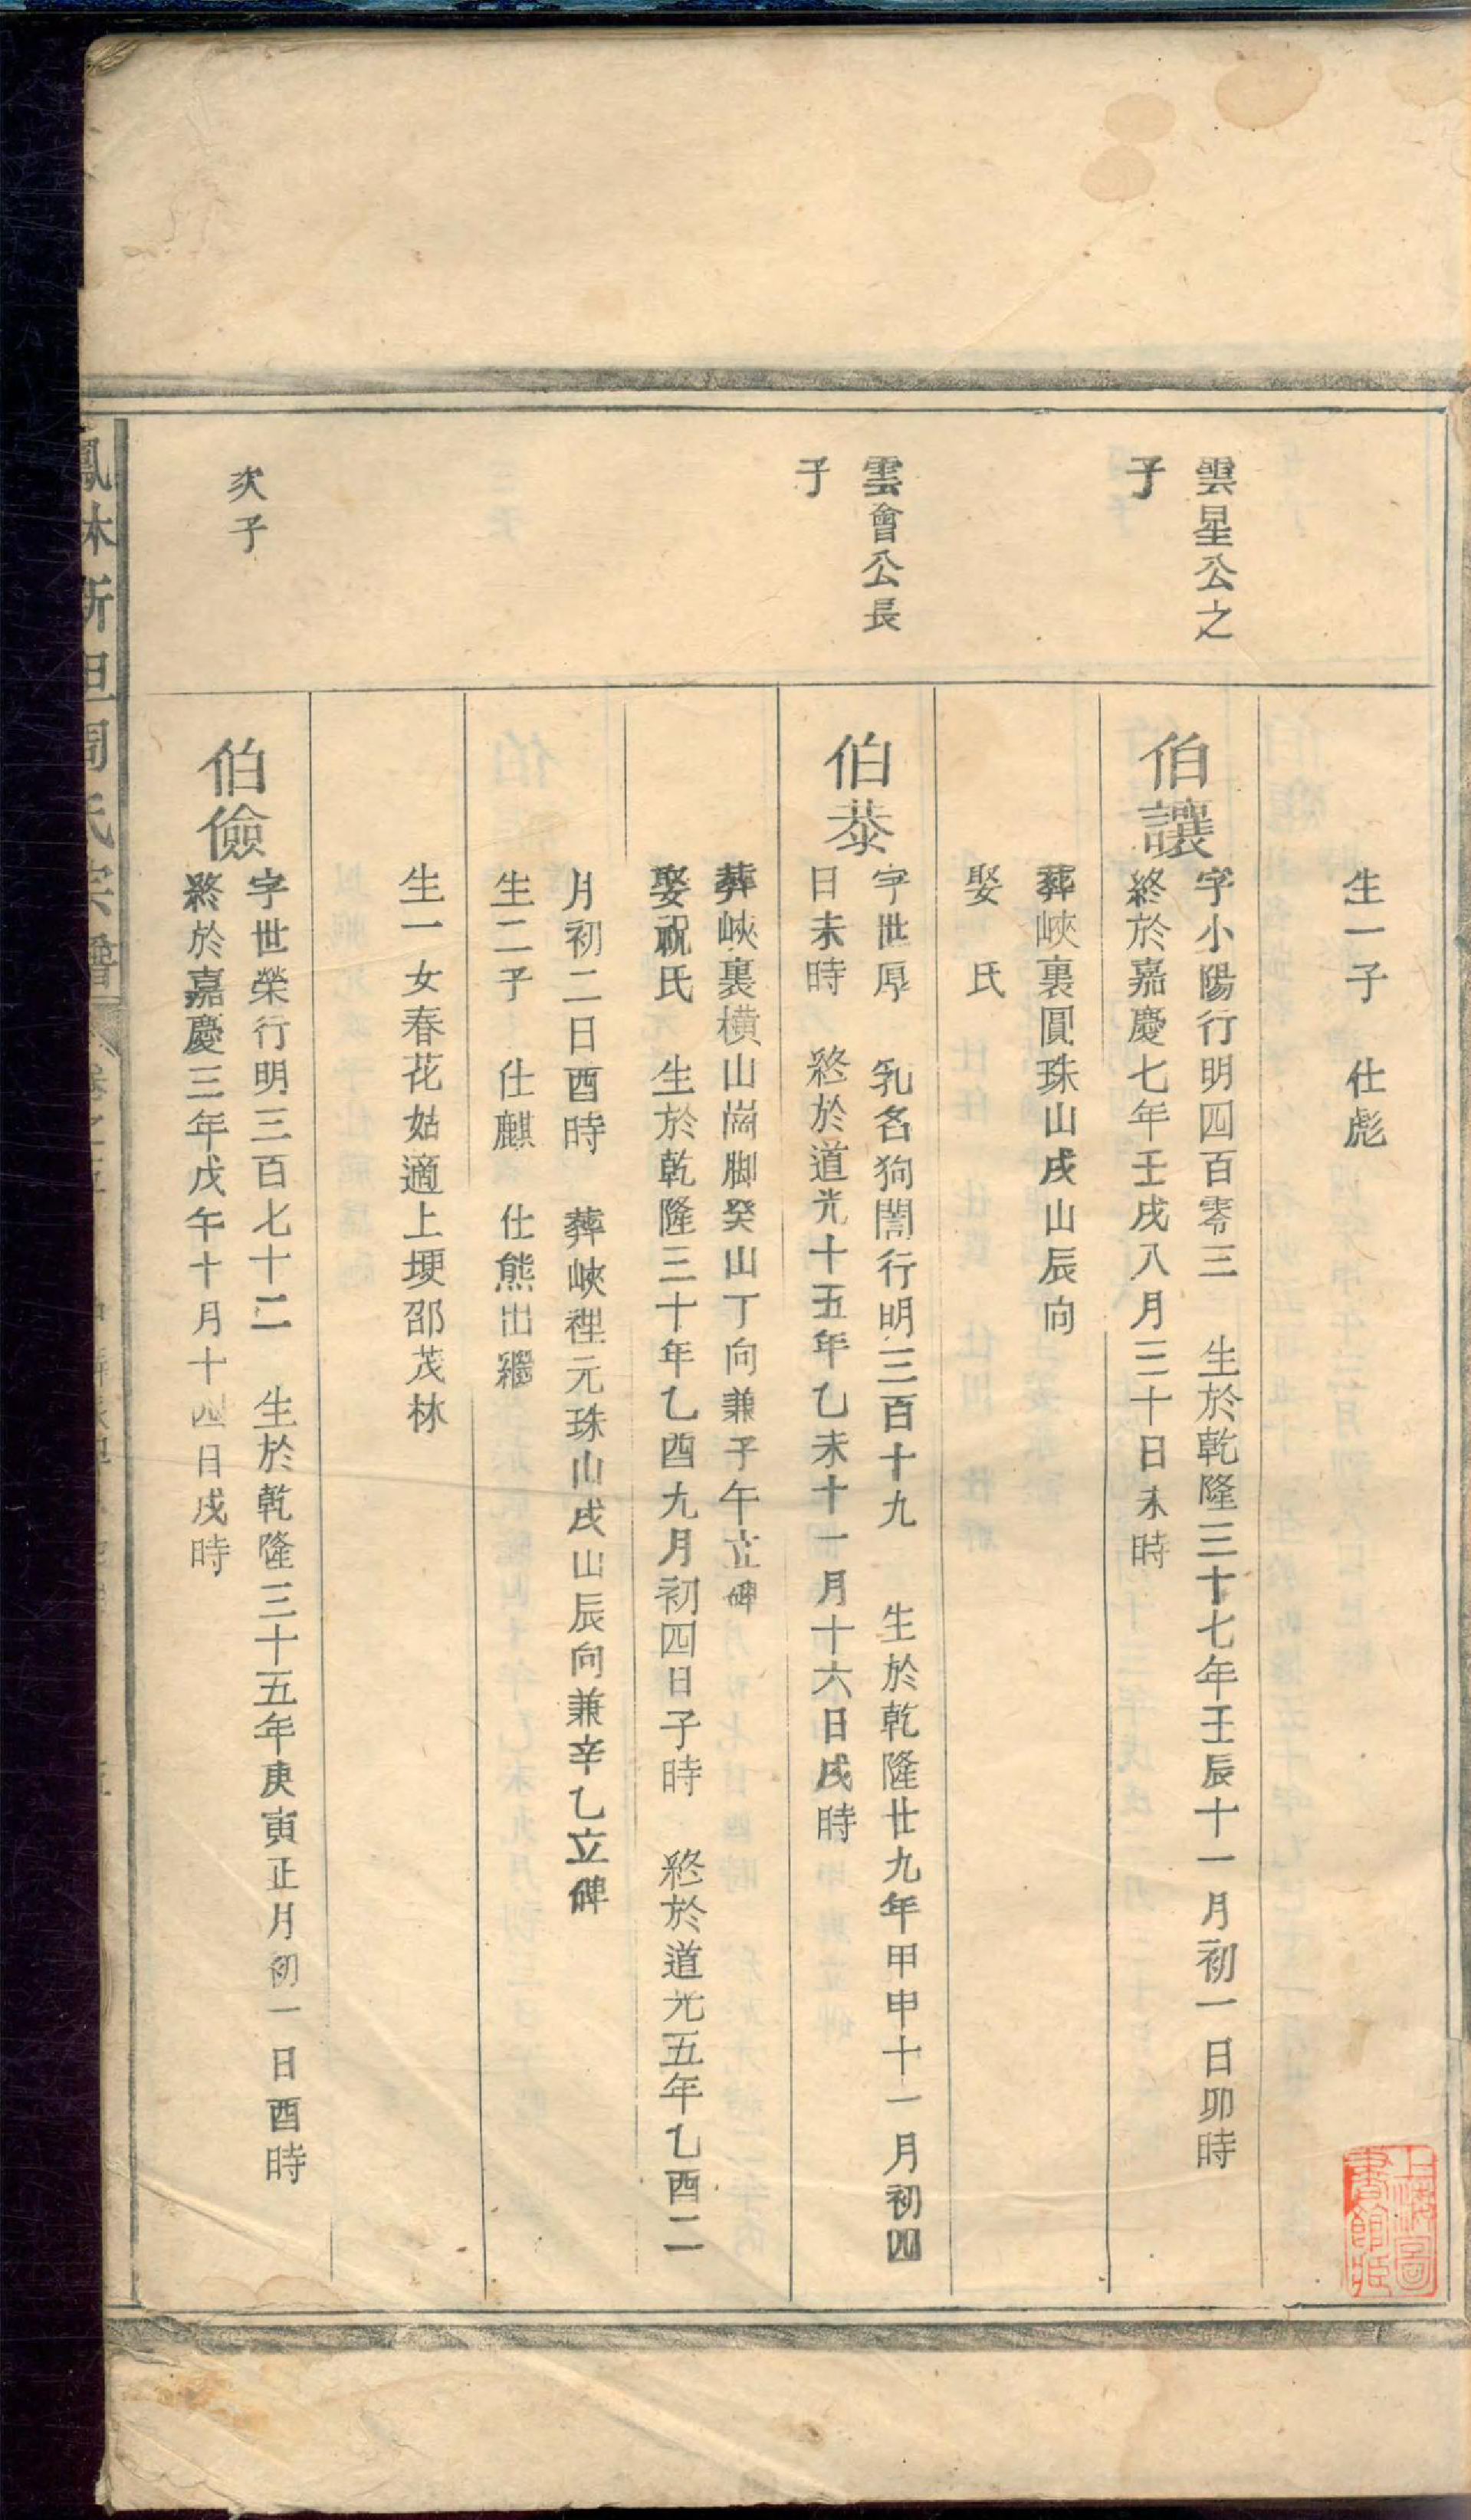 生一子　仕彪
雲星公之
子
伯讓
字小陽行明四百零三　生於乾隆三十七年壬辰十一月初一日卯時
終於嘉慶七年壬戌八月三十日未時
葬峽裏圓珠山戌山辰向
娶　氏
雲會公長
子
伯恭
字世厚　乳名狗闍行明三百十九　生於乾隆廿九年甲申十一月初四
日未時　終於道光十五年乙未十一月十六日戌時
葬峽裏橫山崗脚癸山丁向兼子午立碑
娶祝氏　生於乾隆三十年乙酉九月初四日子時　終於道光五年乙酉二
月初二日酉時　葬峽裡元珠山戌山辰向兼辛乙立碑
生二子　仕麒　仕熊出繼
生一女春花姑適上堘邵茂林
次子
伯儉
字世榮行明三百七十二　生於乾隆三十五年庚寅正月初一日酉時
終於嘉慶三年戊午十月十四日戌時
鳳林斯但周氏宗譜
上海圖書館藏